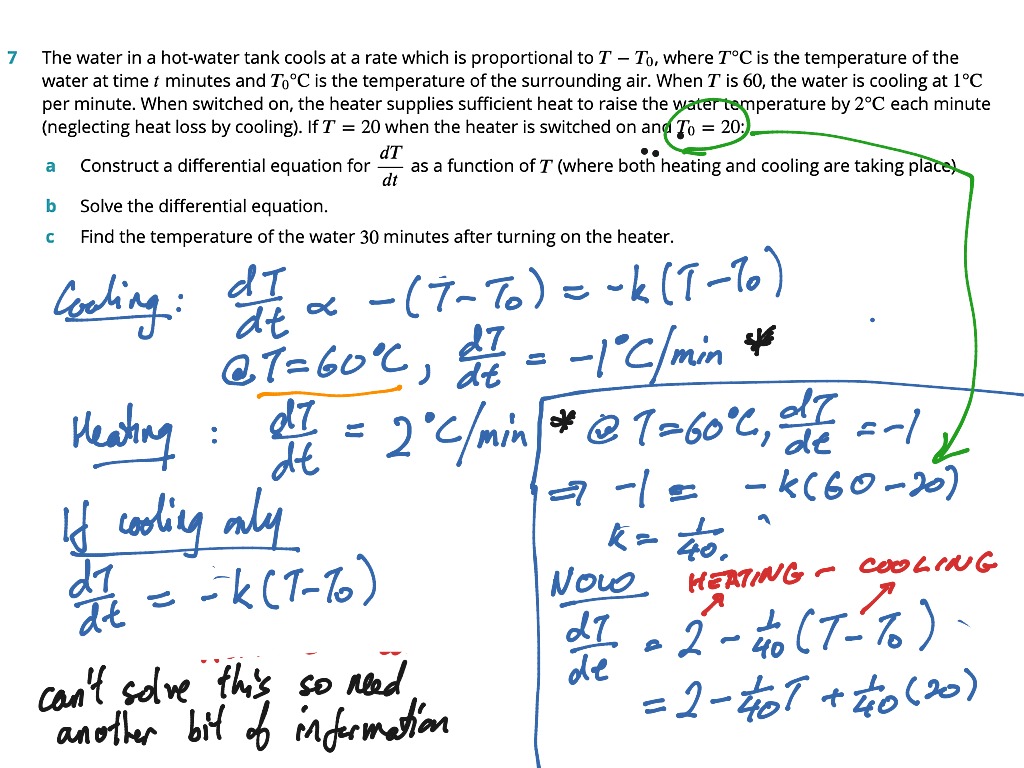 7 The water in a hot-water tank cools at a rate which is proportional to T − T₀, where T°C is the temperature of the
water at time t minutes and T₀°C is the temperature of the surrounding air. When T is 60, the water is cooling at 1°C
per minute. When switched on, the heater supplies sufficient heat to raise the water temperature by 2°C each minute
(neglecting heat loss by cooling). If T = 20 when the heater is switched on and T₀ = 20:
a Construct a differential equation for dT/dt as a function of T (where both heating and cooling are taking place)
b Solve the differential equation.
c Find the temperature of the water 30 minutes after turning on the heater.
Cooling: dT/dt ∝ −(T−T₀) = −k(T−T₀)
@T=60°C, dT/dt = −1°C/min *
Heating: dT/dt = 2°C/min
If cooling only
dT/dt = −k(T−T₀)
can't solve this so need
another bit of information
* @ T=60°C, dT/dt = −1
⇒ −1 = −k(60−20)
k = 1/40.
NOW HEATING − COOLING
dT/dt = 2 − 1/40 (T−T₀)
= 2 − 1/40 T + 1/40 (20)